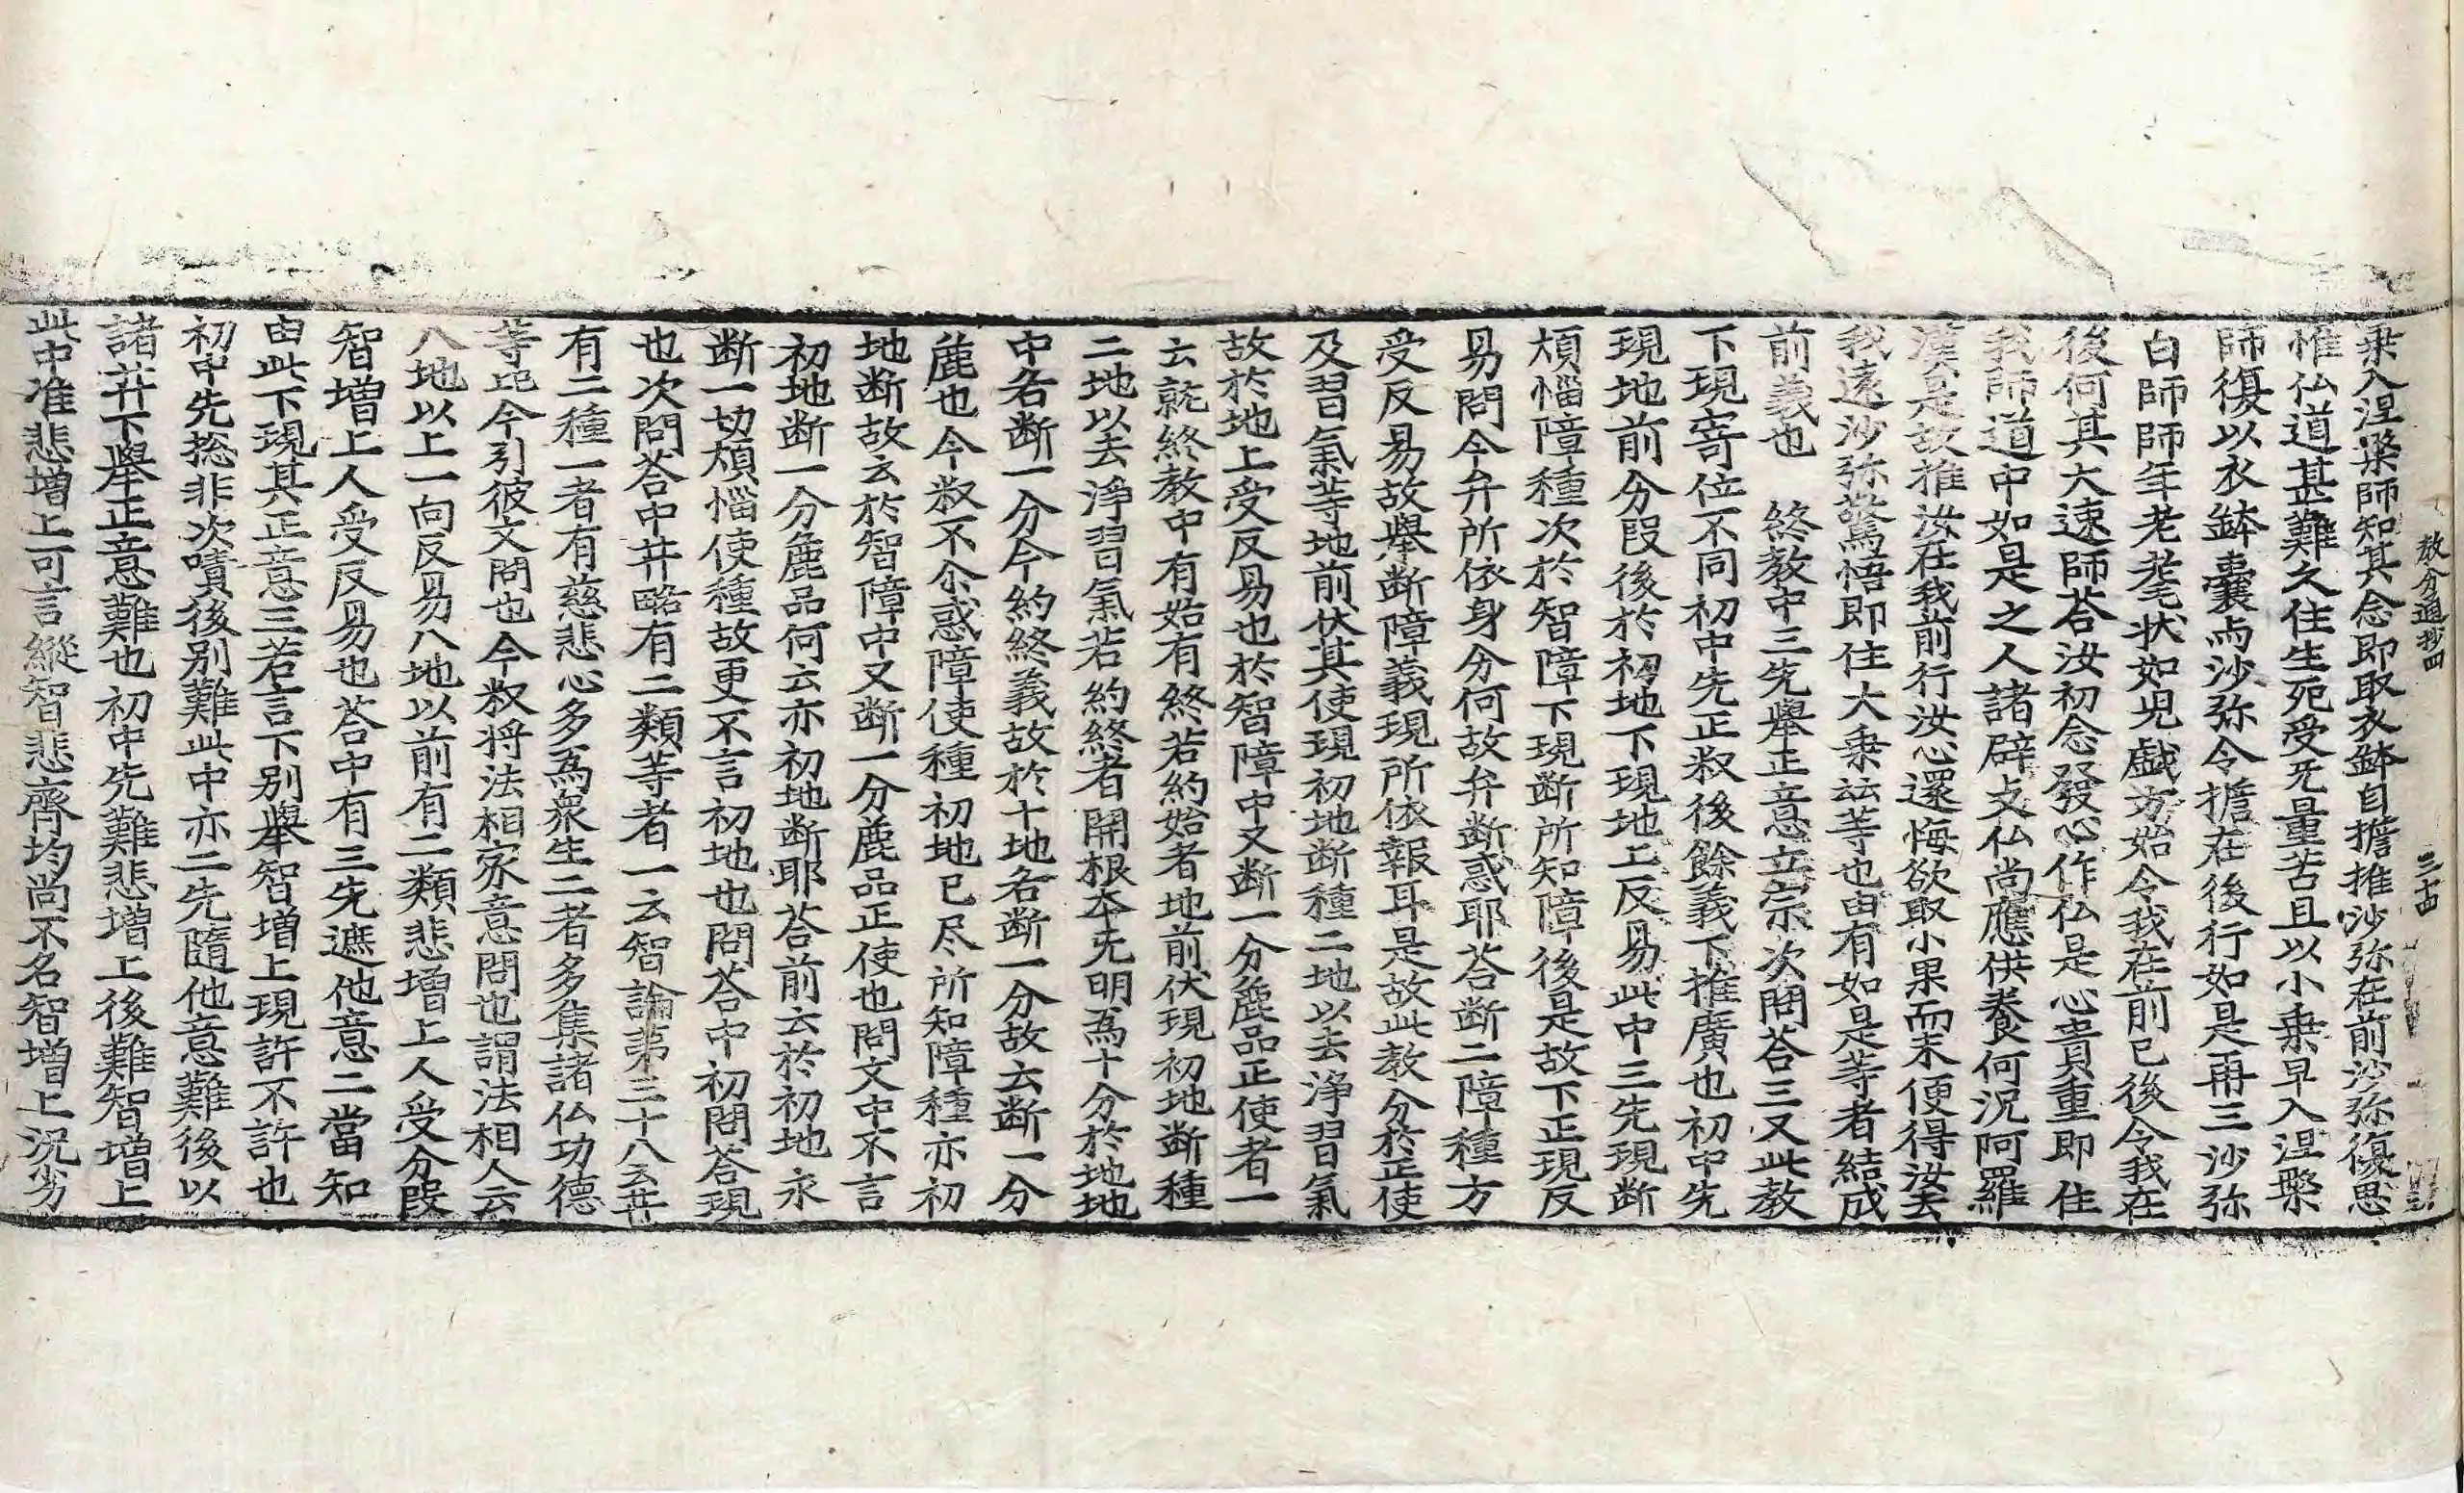 教分通抄四
三十四
乗入涅槃師知其念即取衣鉢自擔推沙弥在前沙弥復思
惟仏道甚難久住生死受无量苦且以小乗早入涅槃
師復以衣鉢囊与沙弥令擔在後行如是再三沙弥
白師師年老耄状如児戯方始令我在前已後令我在
後何其大速師荅汝初念發心作仏是心貴重即住
我師道中如是之人諸辟支仏尚應供養何況阿羅
漢是故推汝在我前行汝心還悔欲取小果而未便得汝去
我遠沙弥驚悟即住大乗法等也由有如是等者結成
前義也　終教中三先舉正意立宗次問荅三又此教
下現寄位不同初中先正叙後餘義下推廣也初中先
現地前分段後於初地下現地上反易此中三先現断
煩惱障種次於智障下現断所知障後是故下正現反
易問今弁所依身分何故弁断惑耶荅断二障種方
受反易故舉断障義現所依報耳是故此教分於正使
及習氣等地前伏其使現初地断種二地以去浄習氣
故於地上受反易也於智障中又断一分麁品正使者一
云就終教中有始有終若約始者地前伏現初地断種
二地以去淨習氣若約終者開根本无明為十分於地地
中名断一分今約終義故於十地名断一分故云断一分
麁也今叙不尒惑障使種初地已尽所知障種亦初
地断故云於智障中又断一分麁品正使也問文中不言
初地断一分麁品何云亦初地断耶荅前云於初地永
断一切煩惱使種故更不言初地也問荅中初問荅現
也次問荅中并略有二類等者一云智論第三十八云𦬇
有二種一者有慈悲心多為衆生二者多集諸仏功德
等比今引彼文問也今叙将法相家意問也謂法相人云
八地以上一向反易八地以前有二類悲增上人受分段
智增上人受反易也荅中有三先遮他意二當知
由此下現其正意三若言下別舉智增上現許不許也
初中先捴非次嘖後別難此中亦二先隨他意難後以
諸𦬇下舉正意難也初中先難悲增上後難智增上
此中准悲增上可言縱智悲齊均尚不名智增上況劣